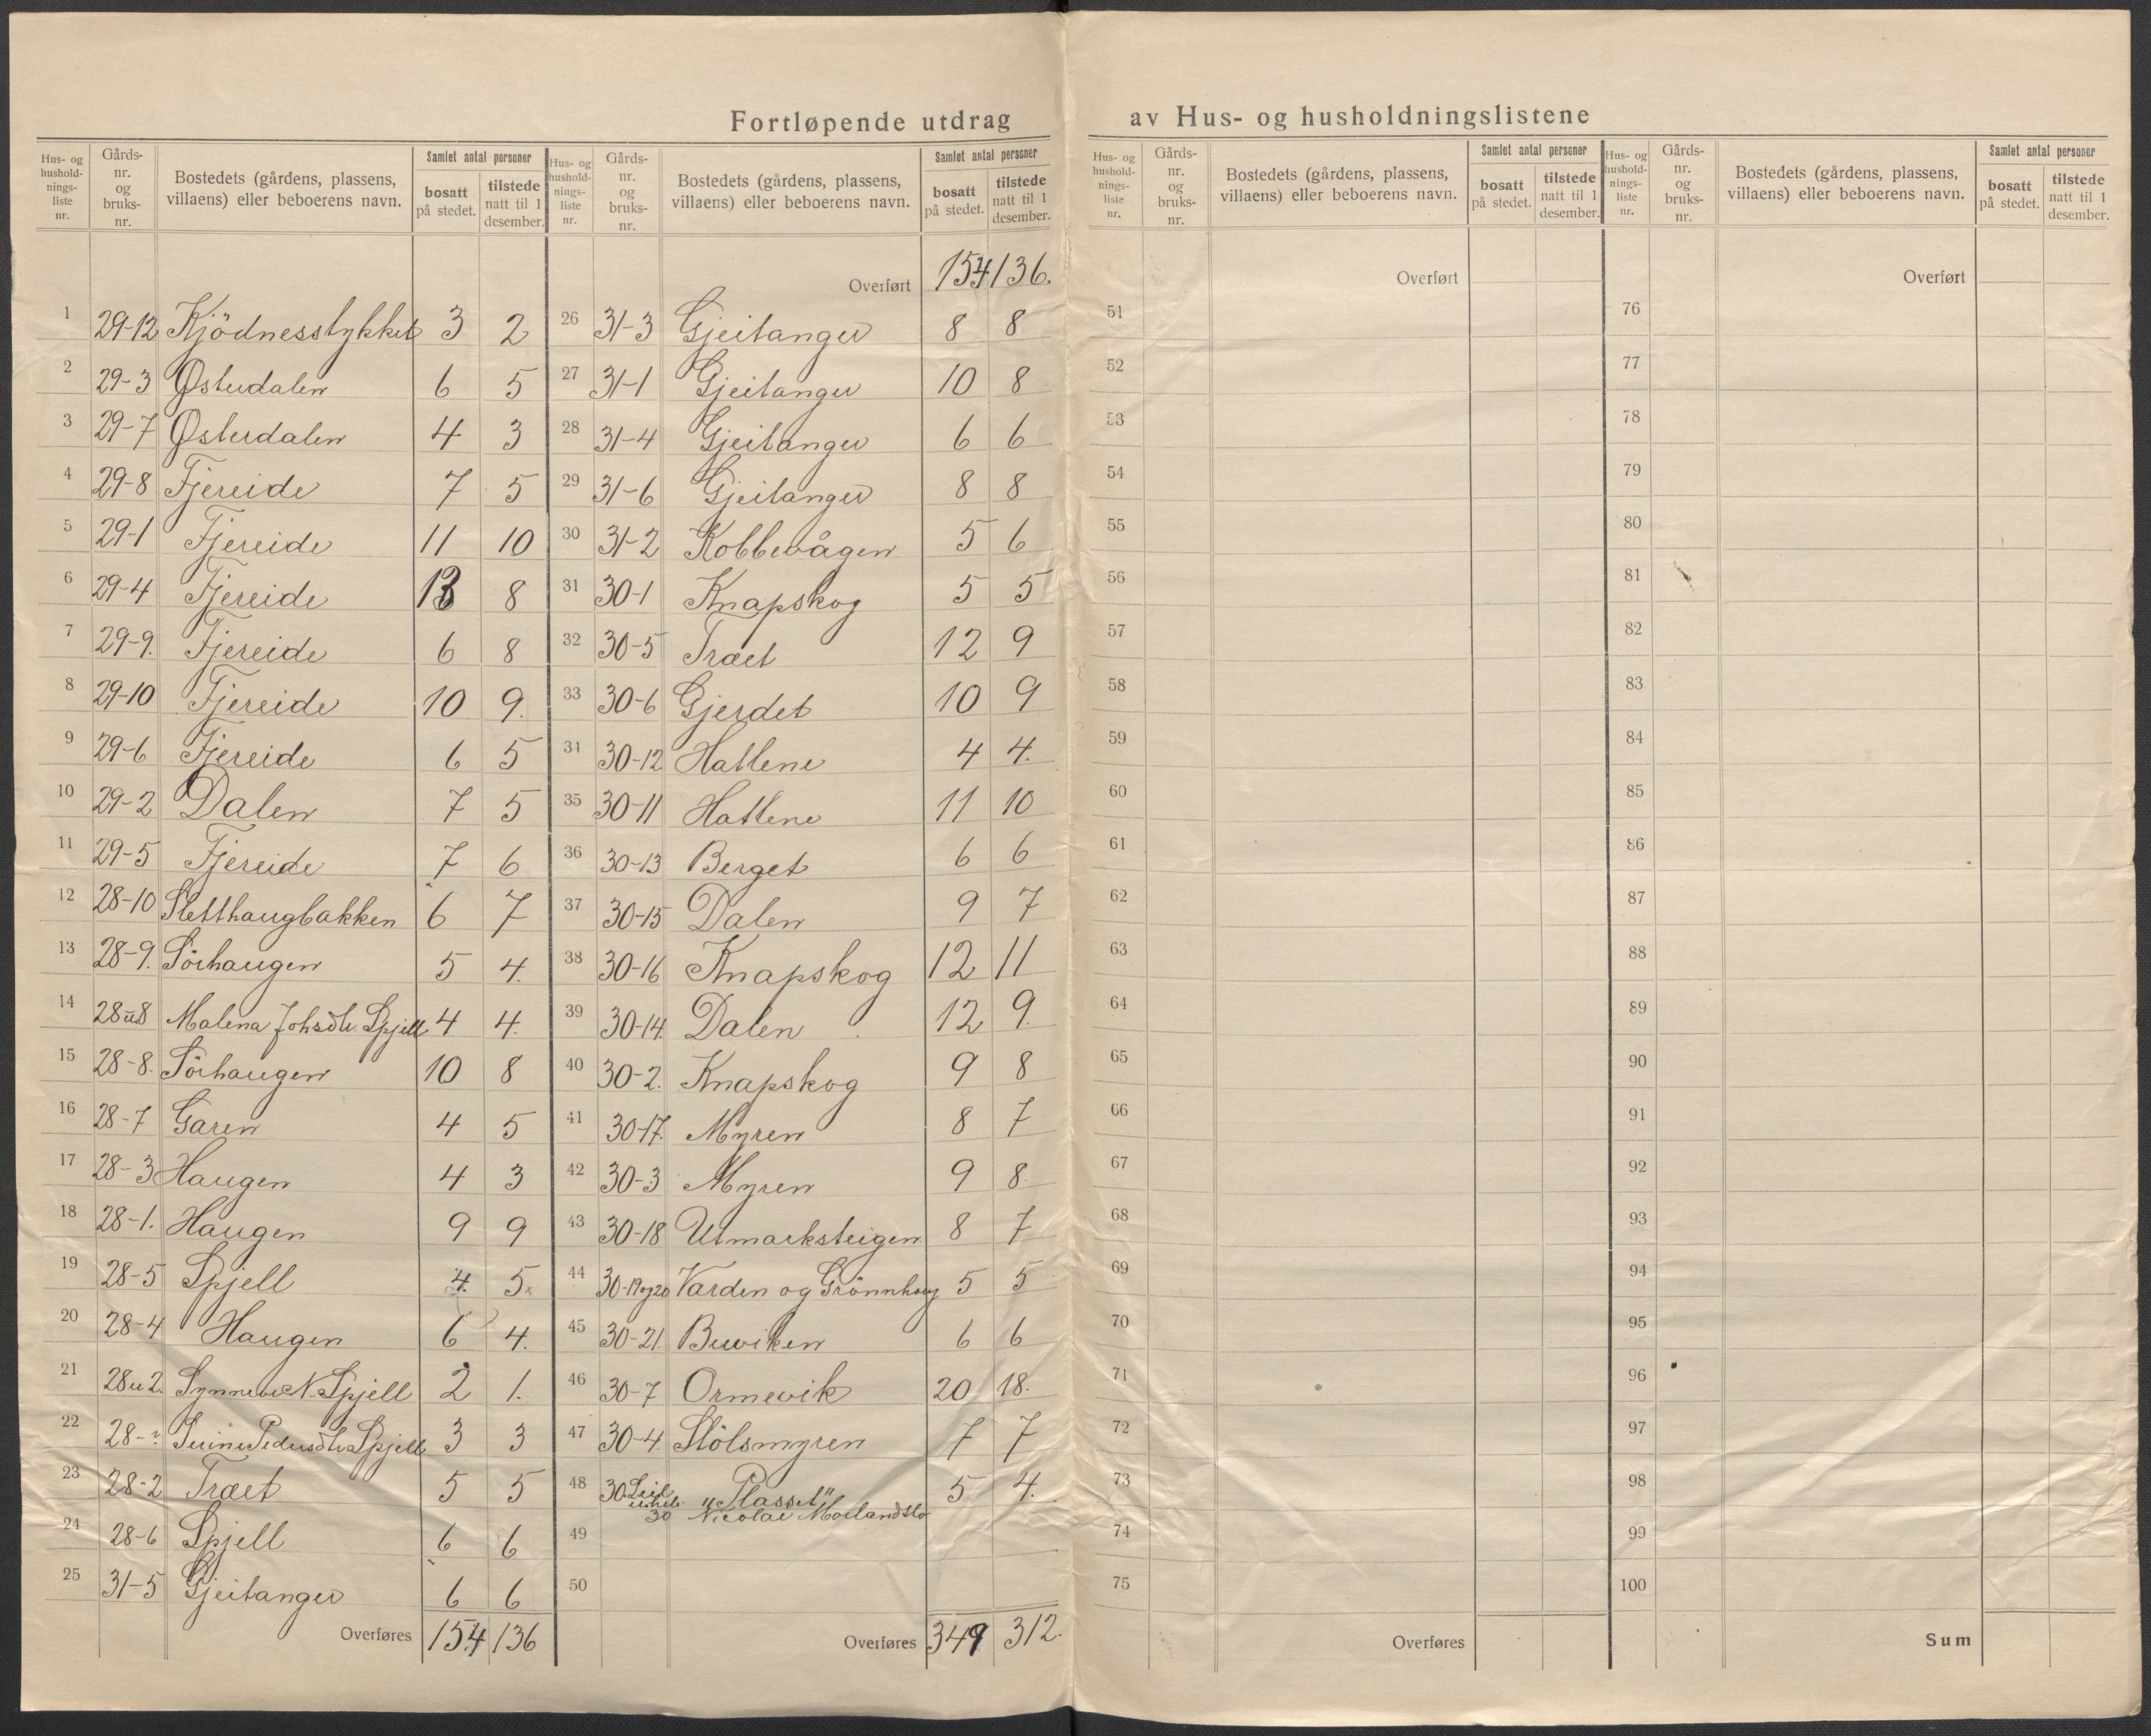 Fortløpende utdrag av Hus- og husholdningslistene
Hus- og hushold-nings-liste nr. Gårds-nr. og bruks-nr. Bostedets (gårdens, plassens, villaens) eller beboerens navn. Samlet antal personer bosatt på stedet. tilstede natt til 1 desember.
1 29-12 Kjödnesstykket 3 2
2 29-3 Østerdalen 6 5
3 29-7 Østerdalen 4 3
4 29-8 Fjereide 7 5
5 29-1 Fjereide 11 10
6 29-4 Fjereide 13 8
7 29-9. Fjereide 6 8
8 29-10 Fjereide 10 9.
9 29-6 Fjereide 6 5
10 29-2 Dalen 7 5
11 29-5 Fjereide 7 6
12 28-10 Sletthaugbakken 6 7
13 28-9. Sörhaugen 5 4.
14 28 u 8 Malena Johsdtr. Spjell 4 4.
15 28-8. Sörhaugen 10 8
16 28-7 Garen 4 5
17 28-3 Haugen 4 3
18 28-1. Haugen 9 9
19 28-5 Spjell 4. 5
20 28-4 Haugen 6 4.
21 28 u 2. Synneve N. Spjell 2 1.
22 28-? Pedersdtr Spjell 3 3
23 28-2 Træet 5 5
24 28-6 Spjell 6 6
25 31-5 Gjeitanger 6 6
Overføres 154 136
Hus- og hushold-nings-liste nr. Gårds-nr. og bruks-nr. Bostedets (gårdens, plassens, villaens) eller beboerens navn. Samlet antal personer bosatt på stedet. tilstede natt til 1 desember.
Overført 154 136.
26 31-3 Gjeitanger 8 8
27 31-1 Gjeitanger 10 8
28 31-4 Gjeitanger 6 6
29 31-6 Gjeitanger 8 8
30 31-2 Kobbevågen 5 6
31 30-1 Knapskog 5 5
32 30-5 Træet 12 9
33 30-6 Gjerdet 10 9
34 30-12 Hatlene 4 4.
35 30-11 Hatlene 11 10
36 30-13 Berget 6 6
37 30-15 Dalen 9 7
38 30-16 Knapskog 12 11
39 30-14. Dalen 12 9.
40 30-2. Knapskog 9 8
41 30-17. Myren 8 7
42 30-3 Myren 9 8.
43 30-18 Utmarksteigen 8 7
44 30-19 og 20 Varden og Grönnhaug 5 5
45 30-21. Buviken 6 6
46 30-7 Ormevik 20 18.
47 30-4. Stölsmyren 7 7
48 30 "Plasset" 5 4.
30 Nicolai
49
50
Overføres 349 312.
Hus- og hushold-nings-liste nr. Gårds-nr. og bruks-nr. Bostedets (gårdens, plassens, villaens) eller beboerens navn. Samlet antal personer bosatt på stedet. tilstede natt til 1 desember.
Overført
51
52
53
54
55
56
57
58
59
60
61
62
63
64
65
66
67
68
69
70
71
72
73
74
75
Overføres
Hus- og hushold-nings-liste nr. Gårds-nr. og bruks-nr. Bostedets (gårdens, plassens, villaens) eller beboerens navn. Samlet antal personer bosatt på stedet. tilstede natt til 1 desember.
Overført
76
77
78
79
80
81
82
83
84
85
86
87
88
89
90
91
92
93
94
95
96
97
98
99
100
Sum